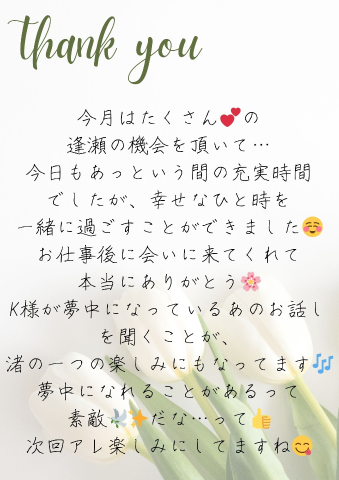 thank you
今月はたくさん💕の
逢瀬の機会を頂いて…
今日もあっという間の充実時間
でしたが、幸せなひと時を
一緒に過ごすことができました☺️
お仕事後に会いに来てくれて
本当にありがとう🌸
K様が夢中になっているあのお話し
を聞くことが、
渚の一つの楽しみにもなってます🎶
夢中になれることがあるって
素敵🕊️✨だな…って👍
次回アレ楽しみにしてますね😋